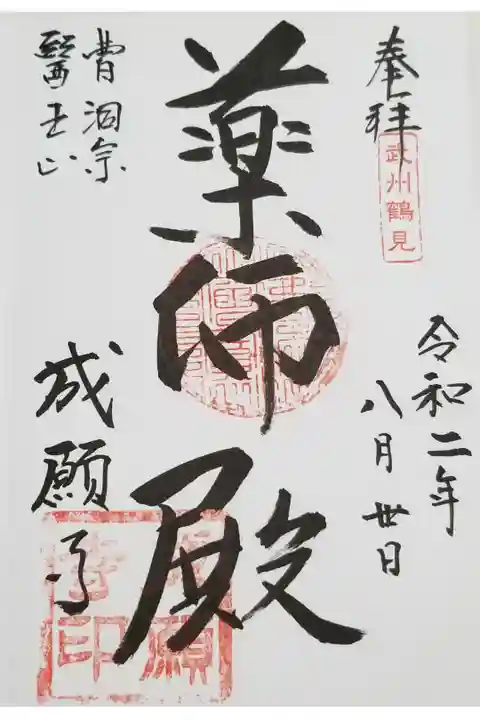 奉拝
武州鶴見
令和二年
八月卅日
薬師殿
曹洞宗
醫王山
成願寺